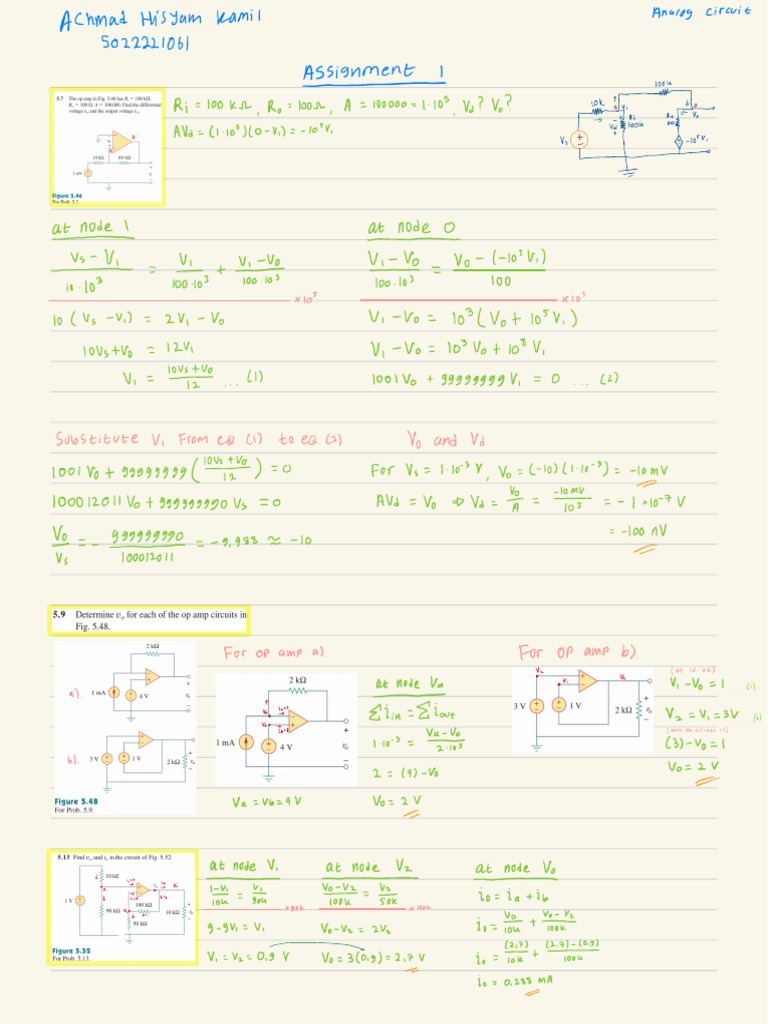 Achmad Hisyam Kamil
Analog circuit
5022221061
Assignment 1
5.7 The op amp in Fig. 5.46 has Ri = 100 kΩ,
Ro = 100 Ω, A = 100,000. Find the differential
voltage vd and the output voltage vo.
10 kΩ 100 kΩ
1 mV
Figure 5.46
For Prob. 5.7.
Ri = 100 kΩ, Ro = 100Ω, A = 100000 = 1·10⁵, Vd? Vo?
AVd = (1·10⁵)(0-V1) = -10⁵V1
100k
10k
V1
Vo
Vd
Ri
100k
Ro
100
-10⁵V1
at node 1
(Vs - V1)/(10·10³) = V1/(100·10³) + (V1-V0)/(100·10³)
×10⁵
10(Vs -V1) = 2V1 - V0
10Vs+V0 = 12V1
V1 = (10Vs+V0)/12 ... (1)
at node 0
(V1-V0)/(100·10³) = (V0-(-10³V1))/100
×10⁵
V1-V0 = 10³(V0+10⁵V1)
V1-V0 = 10³V0+10⁸V1
1001V0 + 99999999V1 = 0 ... (2)
Substitute V1 from eq (1) to eq (2)
1001 V0 + 99999999((10Vs+V0)/12) = 0
100012011V0 + 999999990 Vs = 0
V0/Vs = - 999999990/100012011 = -9,988 ≈ -10
V0 and Vd
For Vs = 1·10⁻³ V, V0 = (-10)(1·10⁻³) = -10 mV
AVd = V0 ⇒ Vd = V0/A = -10mV/10⁵ = -1×10⁻⁷ V
= -100 nV
5.9 Determine vo for each of the op amp circuits in
Fig. 5.48.
a).
2 kΩ
1 mA
4 V
vo
b).
3 V
1 V
2 kΩ
vo
Figure 5.48
For Prob. 5.9.
For op amp a).
2 kΩ
1 mA
4 V
vo
Va = Vb = 4V
at node Va
Σiin = Σiout
1·10⁻³ = (Va-V0)/(2·10³)
2 = (4)-V0
V0 = 2V
For op amp b).
V2
V1
Vo
3 V
1 V
2 kΩ
vo
V1-V0 = 1 ...(1)
V2 = V1 = 3V ...(2)
(3)-V0 = 1
V0 = 2V
5.13 Find vo and io in the circuit of Fig. 5.52.
10 kΩ
1 V
90 kΩ
100 kΩ
50 kΩ
10 kΩ
Figure 5.52
For Prob. 5.13.
at node V1
(1-V1)/10k = V1/90k
×90k
9-9V1 = V1
V1 = V2 = 0,9 V
at node V2
(V0-V2)/100k = V2/50k
×100k
V0-V2 = 2V2
V0 = 3(0,9) = 2,7 V
at node V0
i0 = ia + ib
i0 = V0/10k + (V0-V2)/100k
i0 = (2,7)/10k + (2,7)-(0,9)/100k
i0 = 0,288 mA